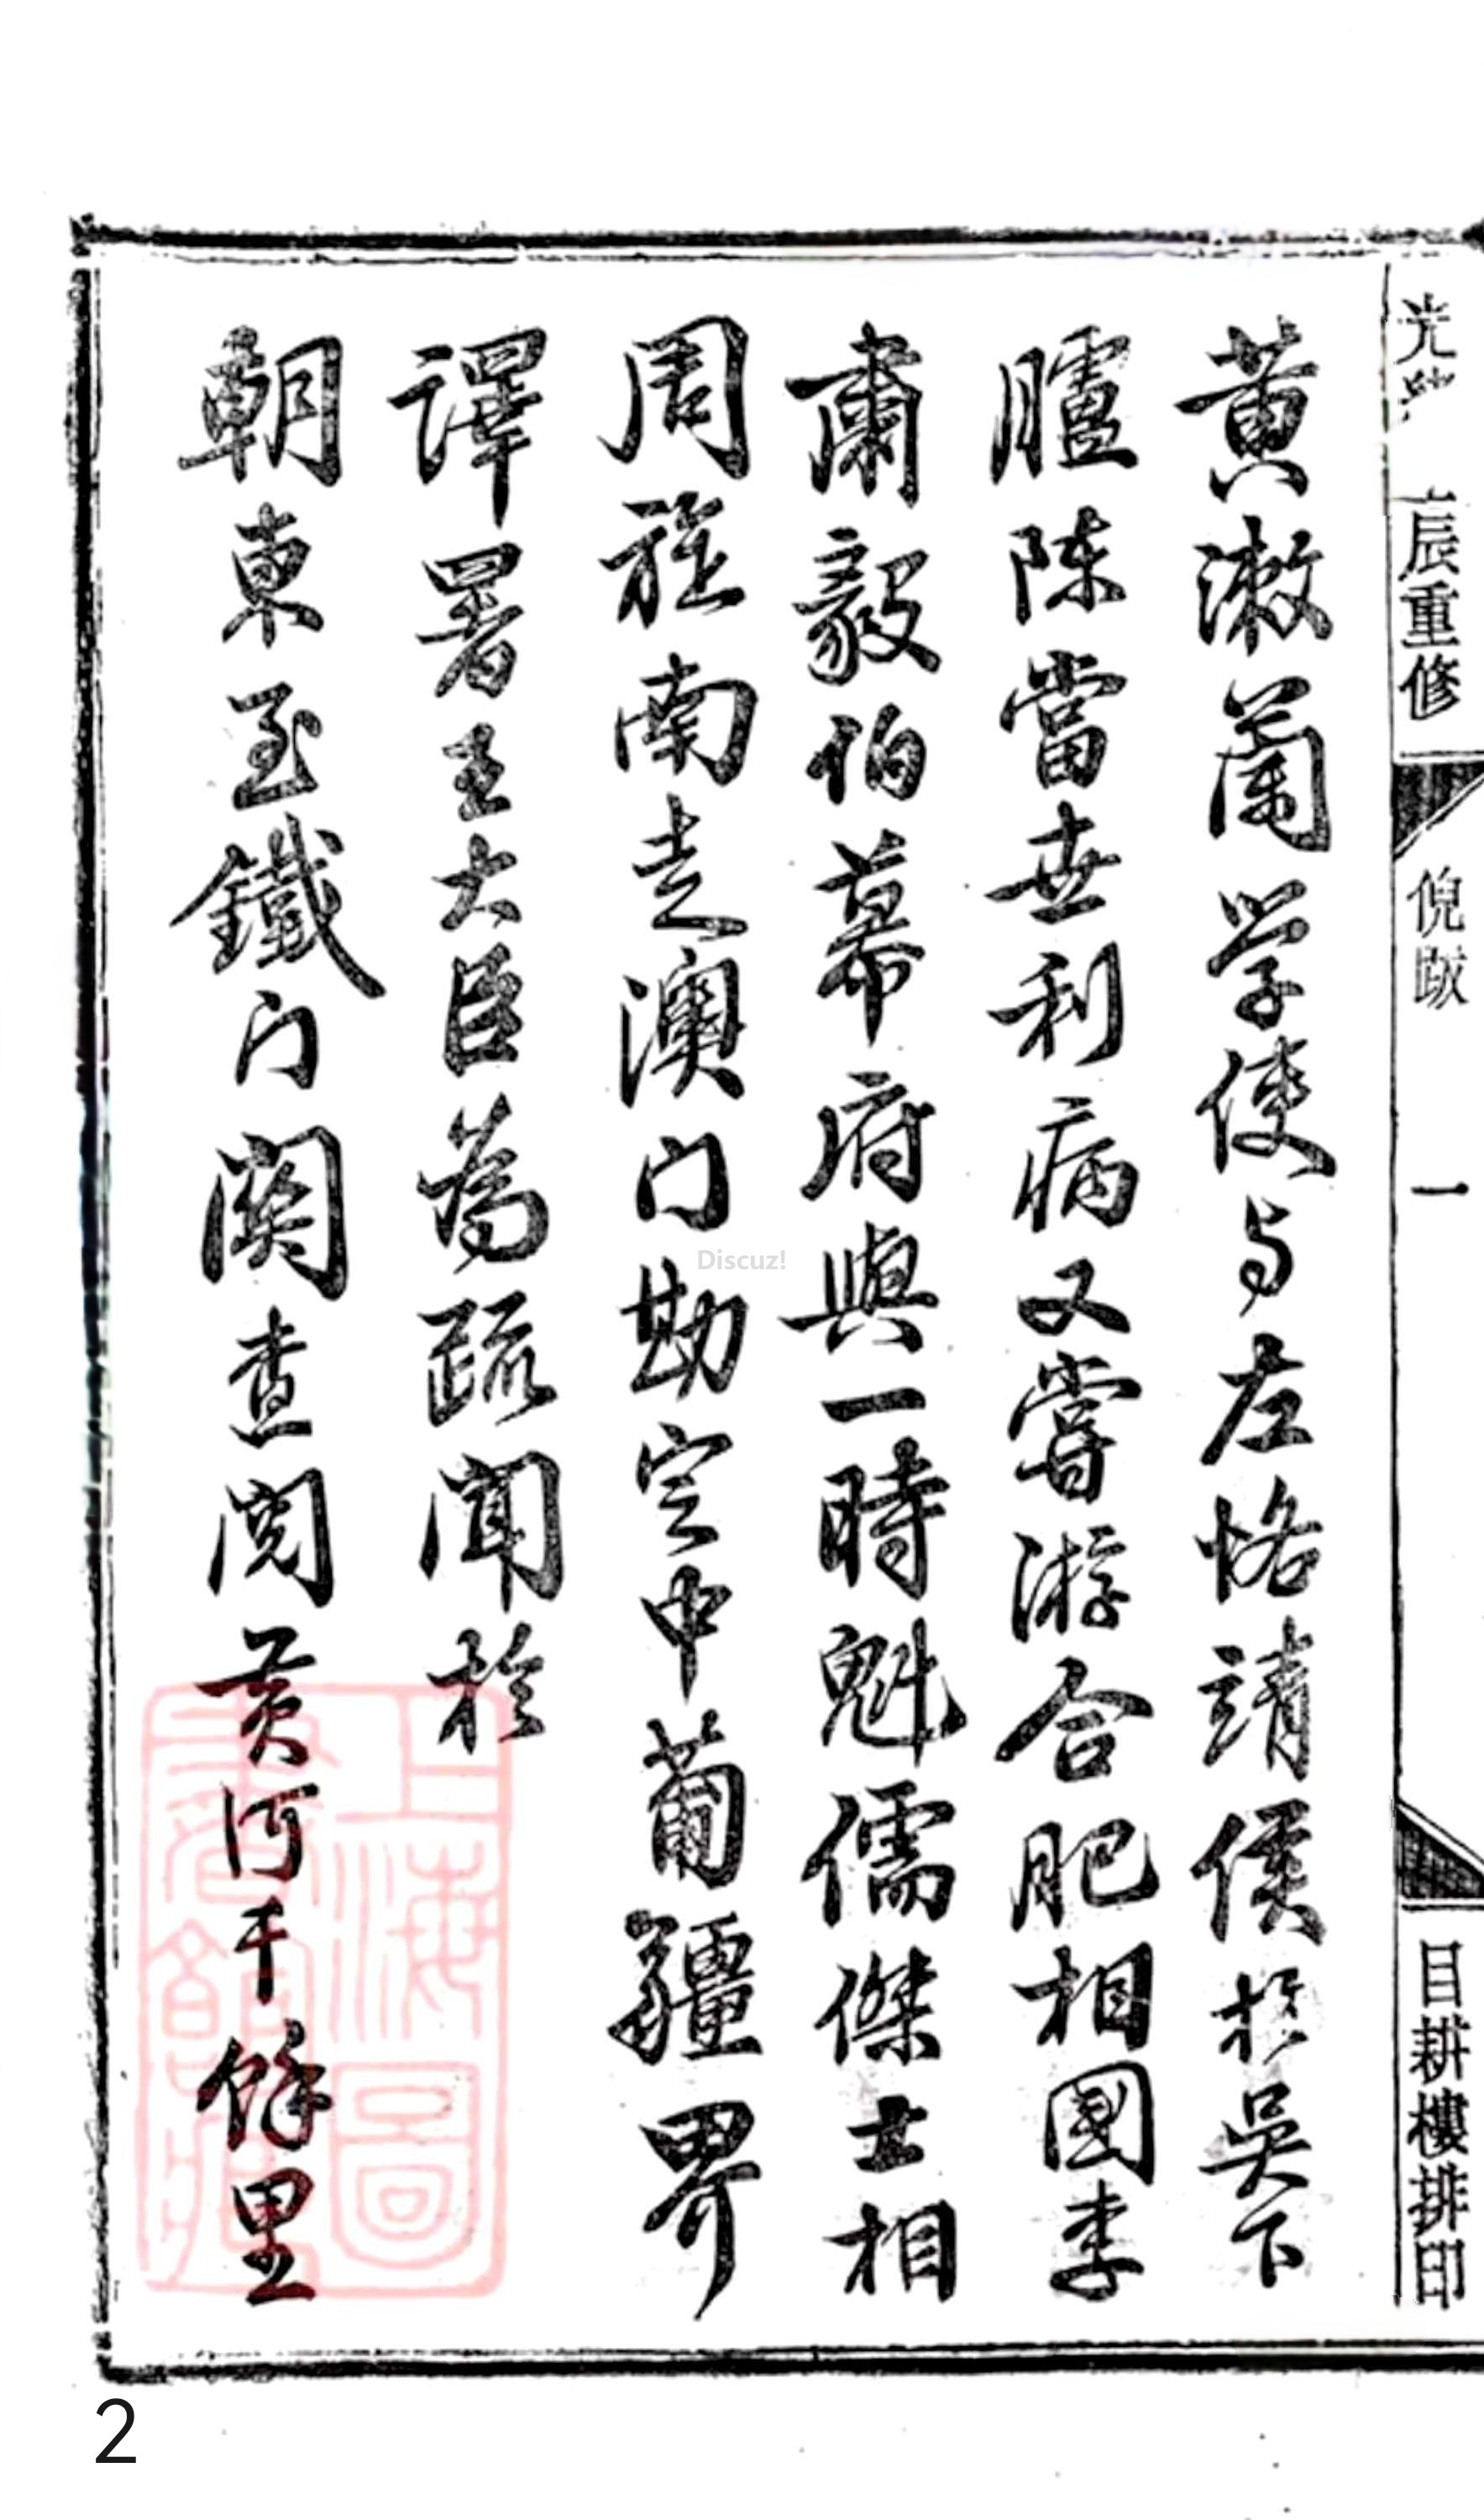 光 辰重修 倪跋 一 目耕樓排印
黄漱蘭学使与左恪靖侯於吳下
臚陳當世利病又嘗游合肥相國李
肅毅伯幕府與一時魁儒傑士相
周旋南走澳门勘定中葡疆界
譯署王大臣為疏聞於
朝東至鐵门関查閱黄河千餘里
上海圖書館藏
Discuz!
2